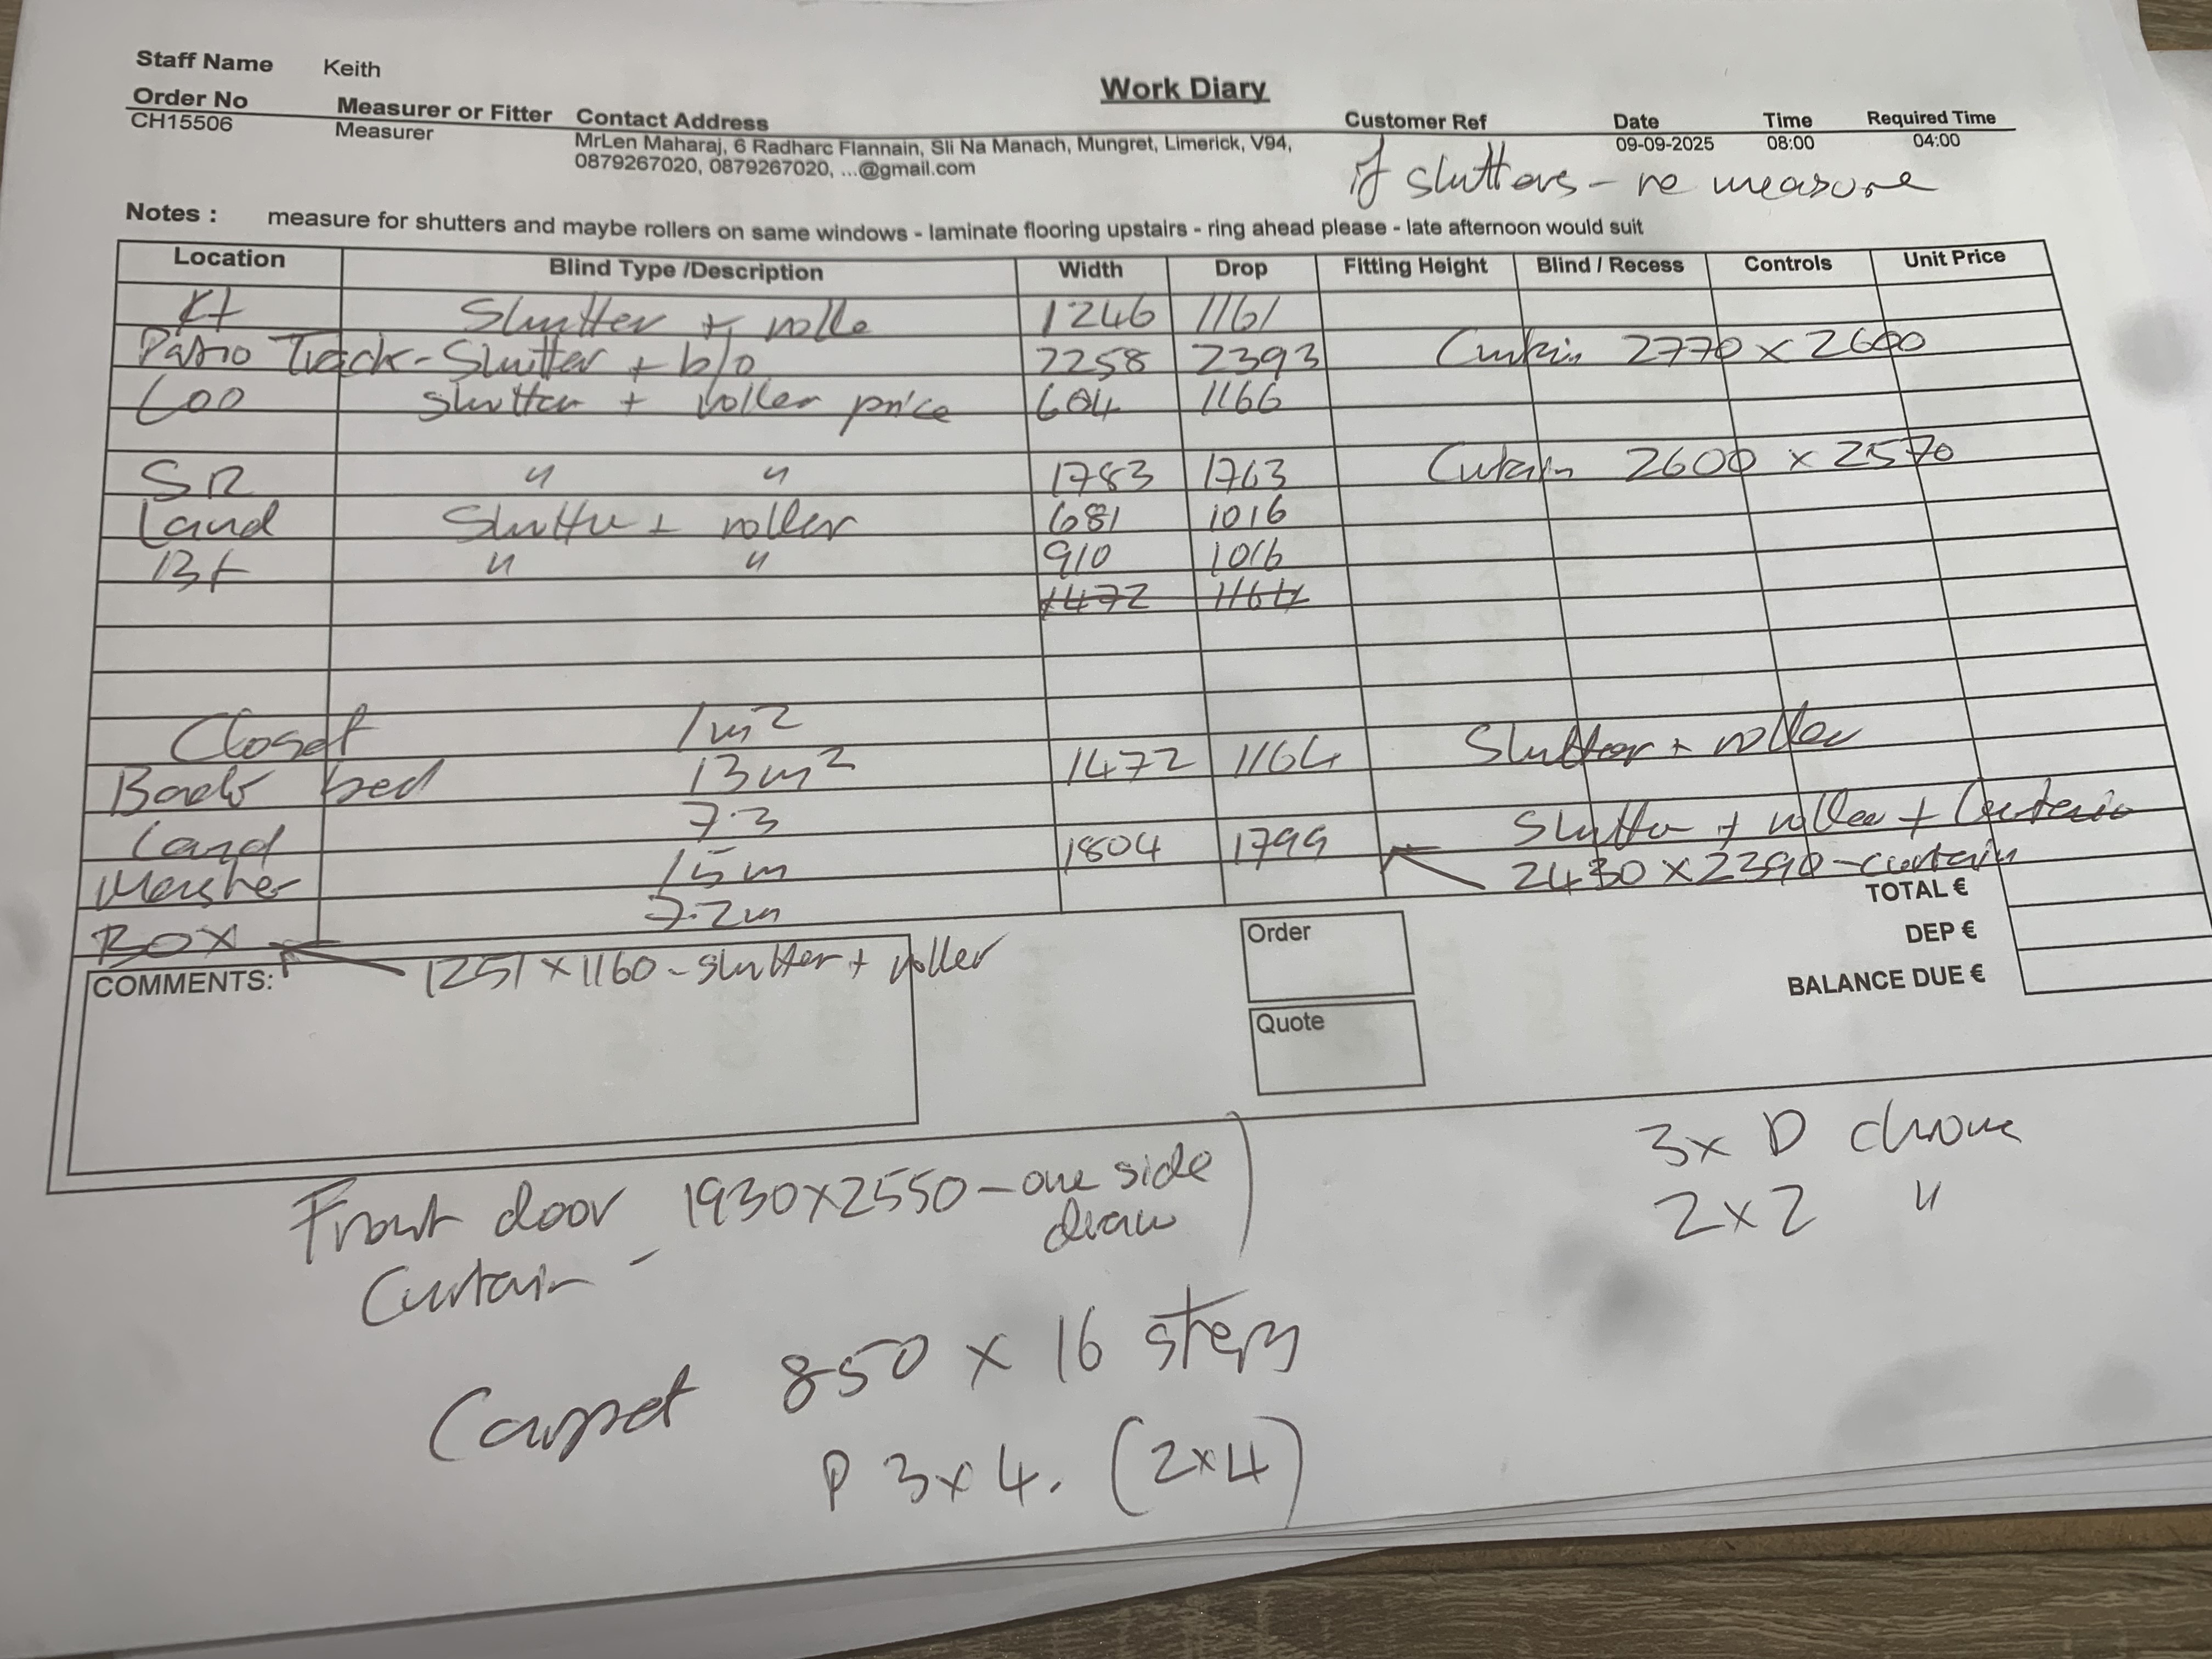 Staff Name Keith
Work Diary
Order No Measurer or Fitter Contact Address Customer Ref Date Time Required Time
CH15506 Measurer MrLen Maharaj, 6 Radharc Flannain, Sli Na Manach, Mungret, Limerick, V94, 09-09-2025 08:00 04:00
0879267020, 0879267020, ...@gmail.com
if shutters - re measure
Notes : measure for shutters and maybe rollers on same windows - laminate flooring upstairs - ring ahead please - late afternoon would suit
Location Blind Type /Description Width Drop Fitting Height Blind / Recess Controls Unit Price
Kt Shutter + rolle 1246 1161
Patio Track-Shutter + b/o 2258 2393 Curtain 2770 x 2600
Loo shutter + roller price 604 1166
SR " " 1783 1763 Curtain 2600 x 2570
Land Shutter + roller 681 1016
Bt " " 910 1016
1472 1164
Closet 1m²
Back bed 13m² 1472 1164 Shutter + roller
Land 7.3
Master 15m 1804 1799 Shutter + roller + Curtain
2430 x 2390 - curtain
Box 7.2m
1251 x 1160 - shutter + roller
TOTAL €
DEP €
BALANCE DUE €
Order
Quote
COMMENTS:
Front door 1930x2550 - one side draw
Curtain -
3x D chrome
2x2 "
Carpet 850 x 16 steps
P 3x4. (2x4)